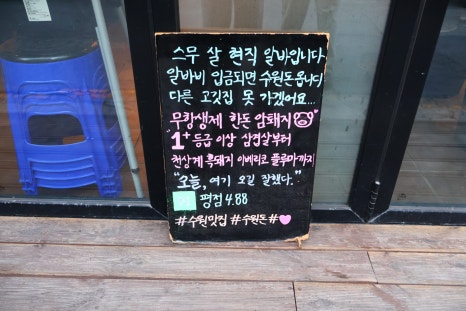 스무 살 현직 알바입니다
알바비 입금되면 수원돈옵니다
다른 고깃집 못 가겠어요...
무항생제 한돈 암돼지
1+등급 이상 삼겹살부터
천상계 흑돼지 이베리코 플루마까지
"오늘, 여기 오길 잘했다."
평점 4.88
#수원맛집 #수원돈 #